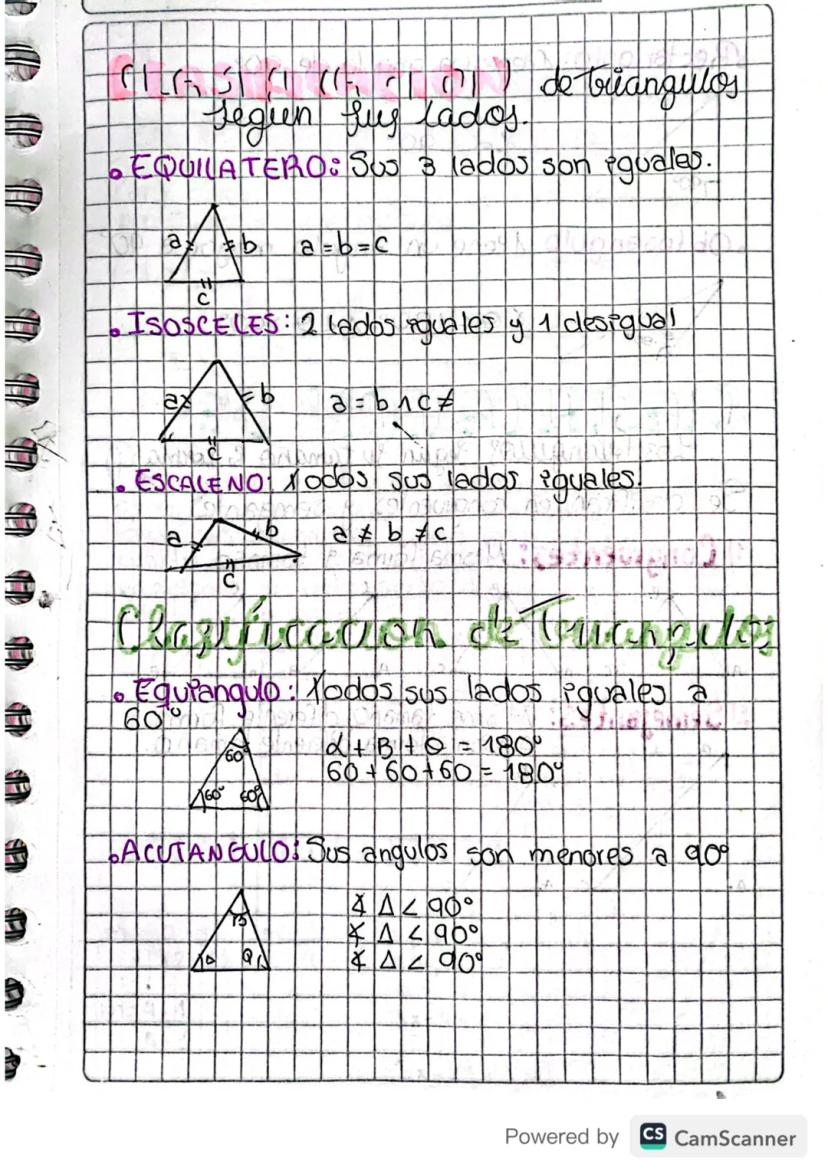 CLASIFICACION de triangulos
segun sus lados.
• EQUILATERO: Sus 3 lados son iguales.
a b a = b = c
c
• ISOSCELES: 2 lados iguales y 1 desigual
a b a = b ∧ c ≠
c
• ESCALENO: Todos sus lados iguales.
a b a ≠ b ≠ c
c
Clasificacion de Triangulos
• Equiangulo: Todos sus lados iguales a
60°
60° α + B + θ = 180°
60° 60° 60 + 60 + 60 = 180°
• ACUTANGULO: Sus angulos son menores a 90°
B ∡ Δ < 90°
∡ Δ < 90°
Δ ∡ Δ < 90°
Powered by CS CamScanner